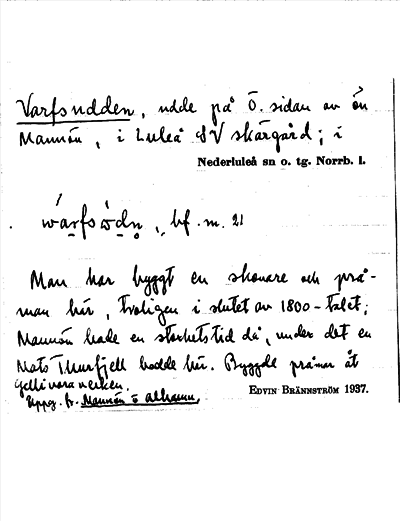 Varfsudden, udde på Ö. sidan av ön
Mannön, i Luleå SV skärgård; i
Nederluleå sn o. tg. Norrb. l.
bf. m. 21
Man har byggt en skonare och prå-
man här, troligen i slutet av 1800-talet;
Mannön hade en storhetstid då, under det en
Mats Thurfjell bodde här. Byggde pråmar åt
Gellivaraverken.
Uppg. fr. Mannön o
EDVIN BRÄNNSTRÖM 1937.